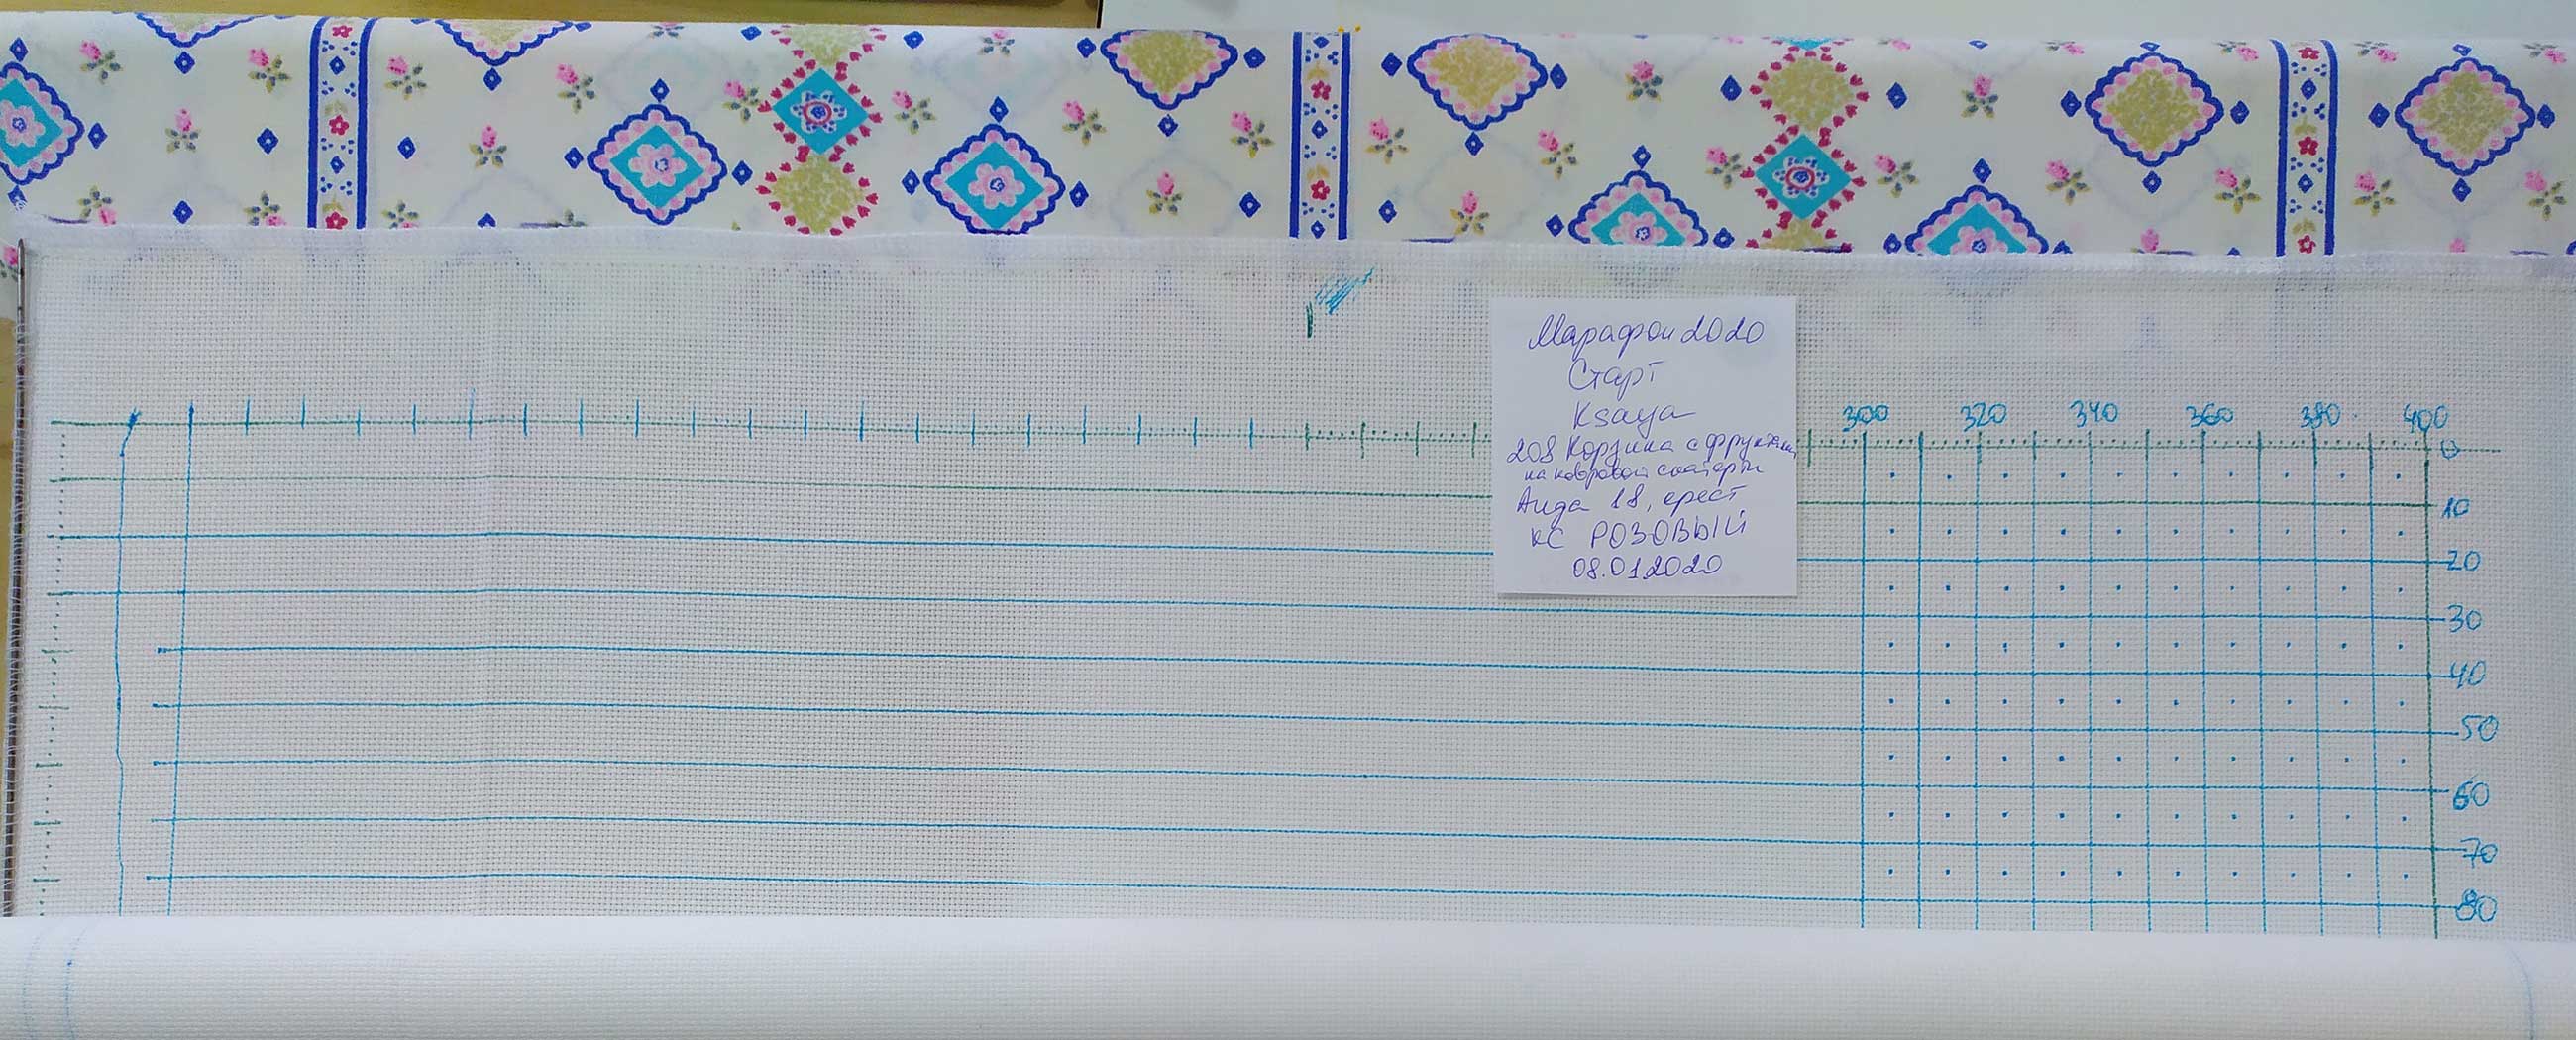 Марафон 2020
Старт
Ksaya
208 Корзина с фруктами
на ковровой скатерти
Аида 18, крест
КС РОЗОВЫЙ
08.01.2020
300 320 340 360 380 400
0
10
20
30
40
50
60
70
80